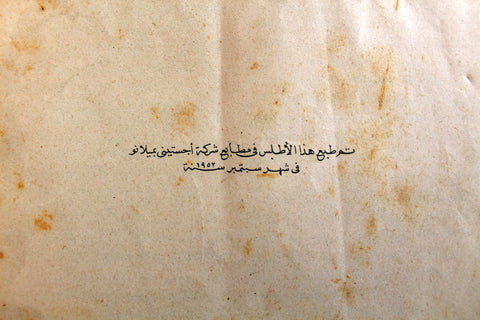 تم طبع هذا الأطلس فى مطابع شركة أجستينى بميلانو
فى شهر سبتمبر سنة ١٩٥٢